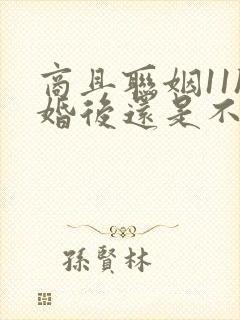 商且聯姻11
婚後還是不
孫賢林